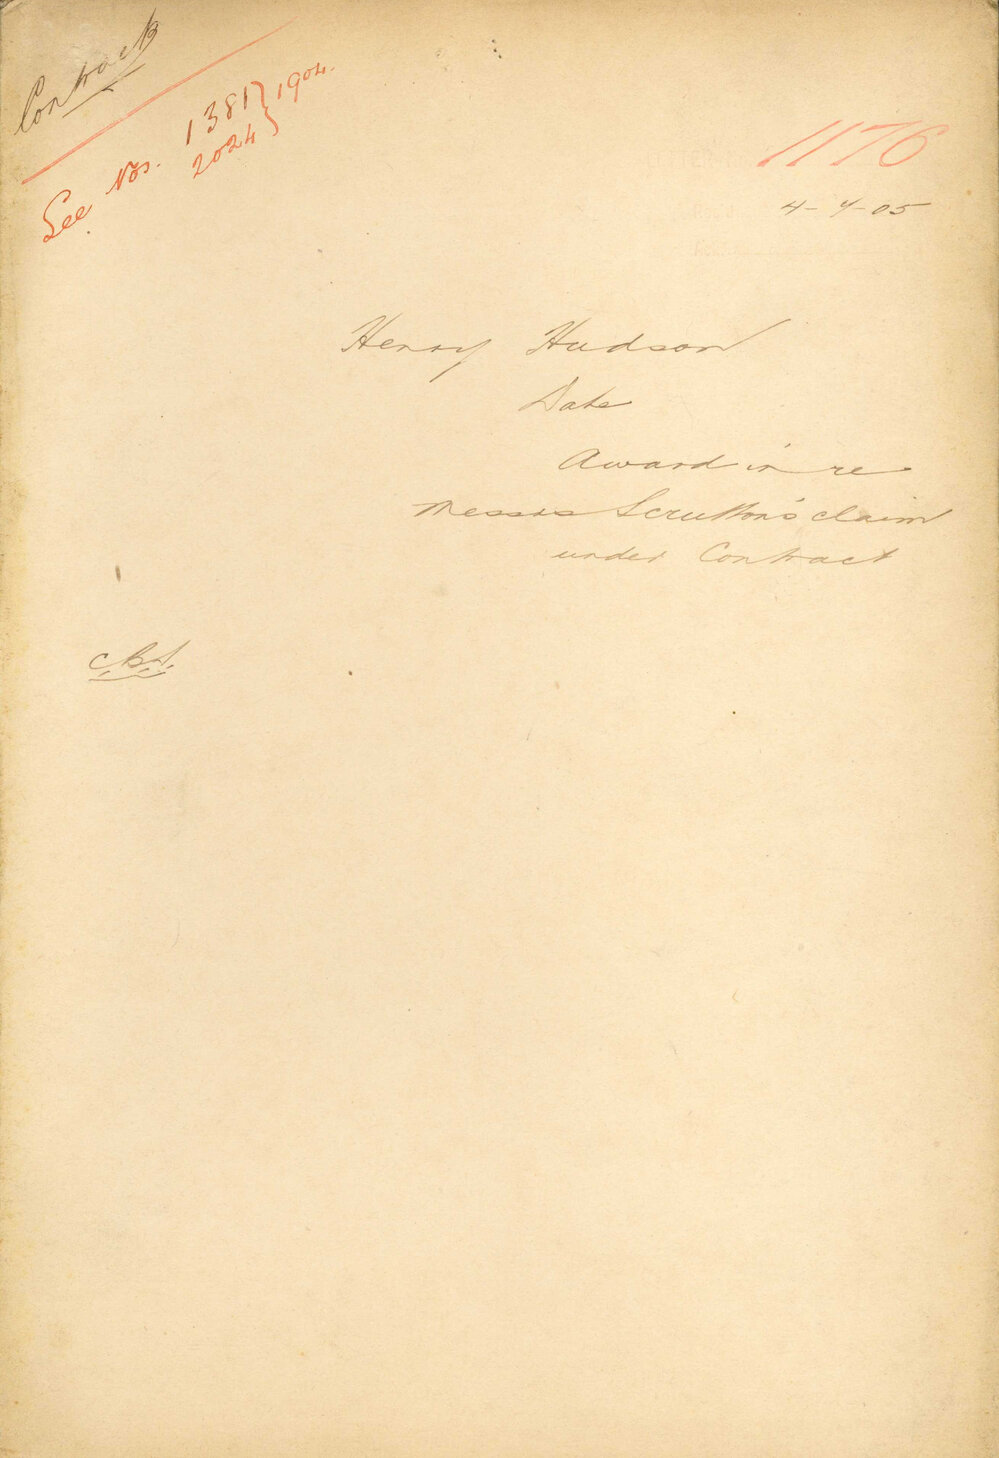 Contract
See Nos. 1381 } 1904.
2024
1176
4-4-05
Henry Hudson
Date
Award in re
Messrs Scrutton's claim
under Contract